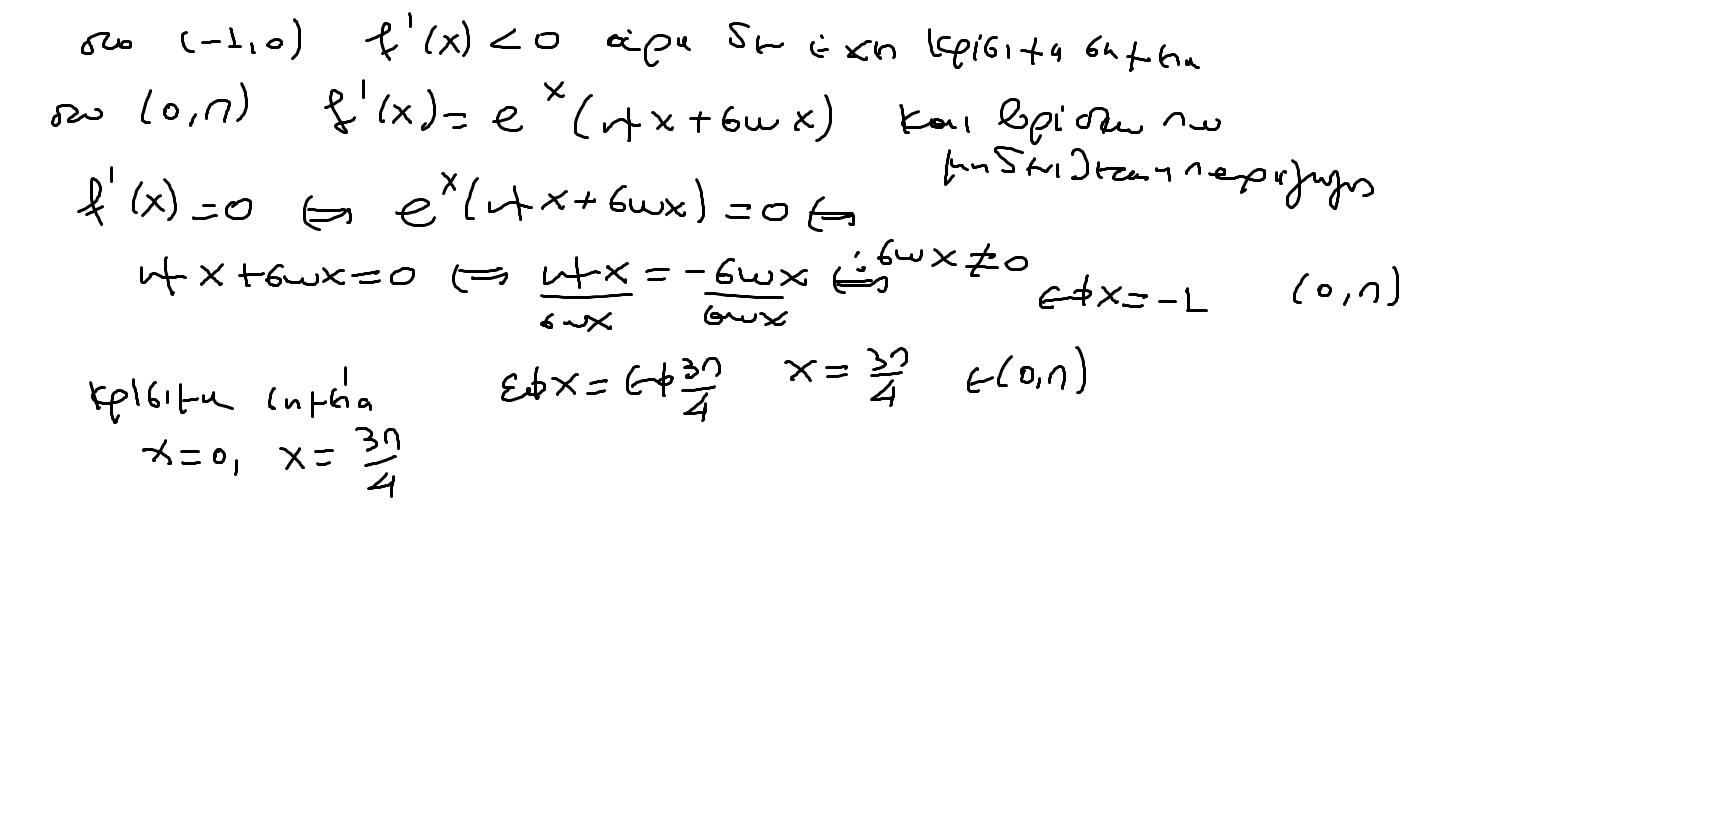 στο (-1,0) f'(x) < 0 άρα δεν έχει κρίσιμα σημεία
στο (0,π) f'(x) = e^x (ημx + συνx) και βρίσκω που
μηδενίζεται η παράγωγος
f'(x) = 0 ⇔ e^x (ημx + συνx) = 0 ⇔
ημx + συνx = 0 ⇔ ημx/συνx = -συνx/συνx ⇔ : συνx ≠ 0 εφx = -1 (0,π)
εφx = εφ 3π/4 x = 3π/4 ∈ (0,π)
κρίσιμα σημεία
x = 0, x = 3π/4